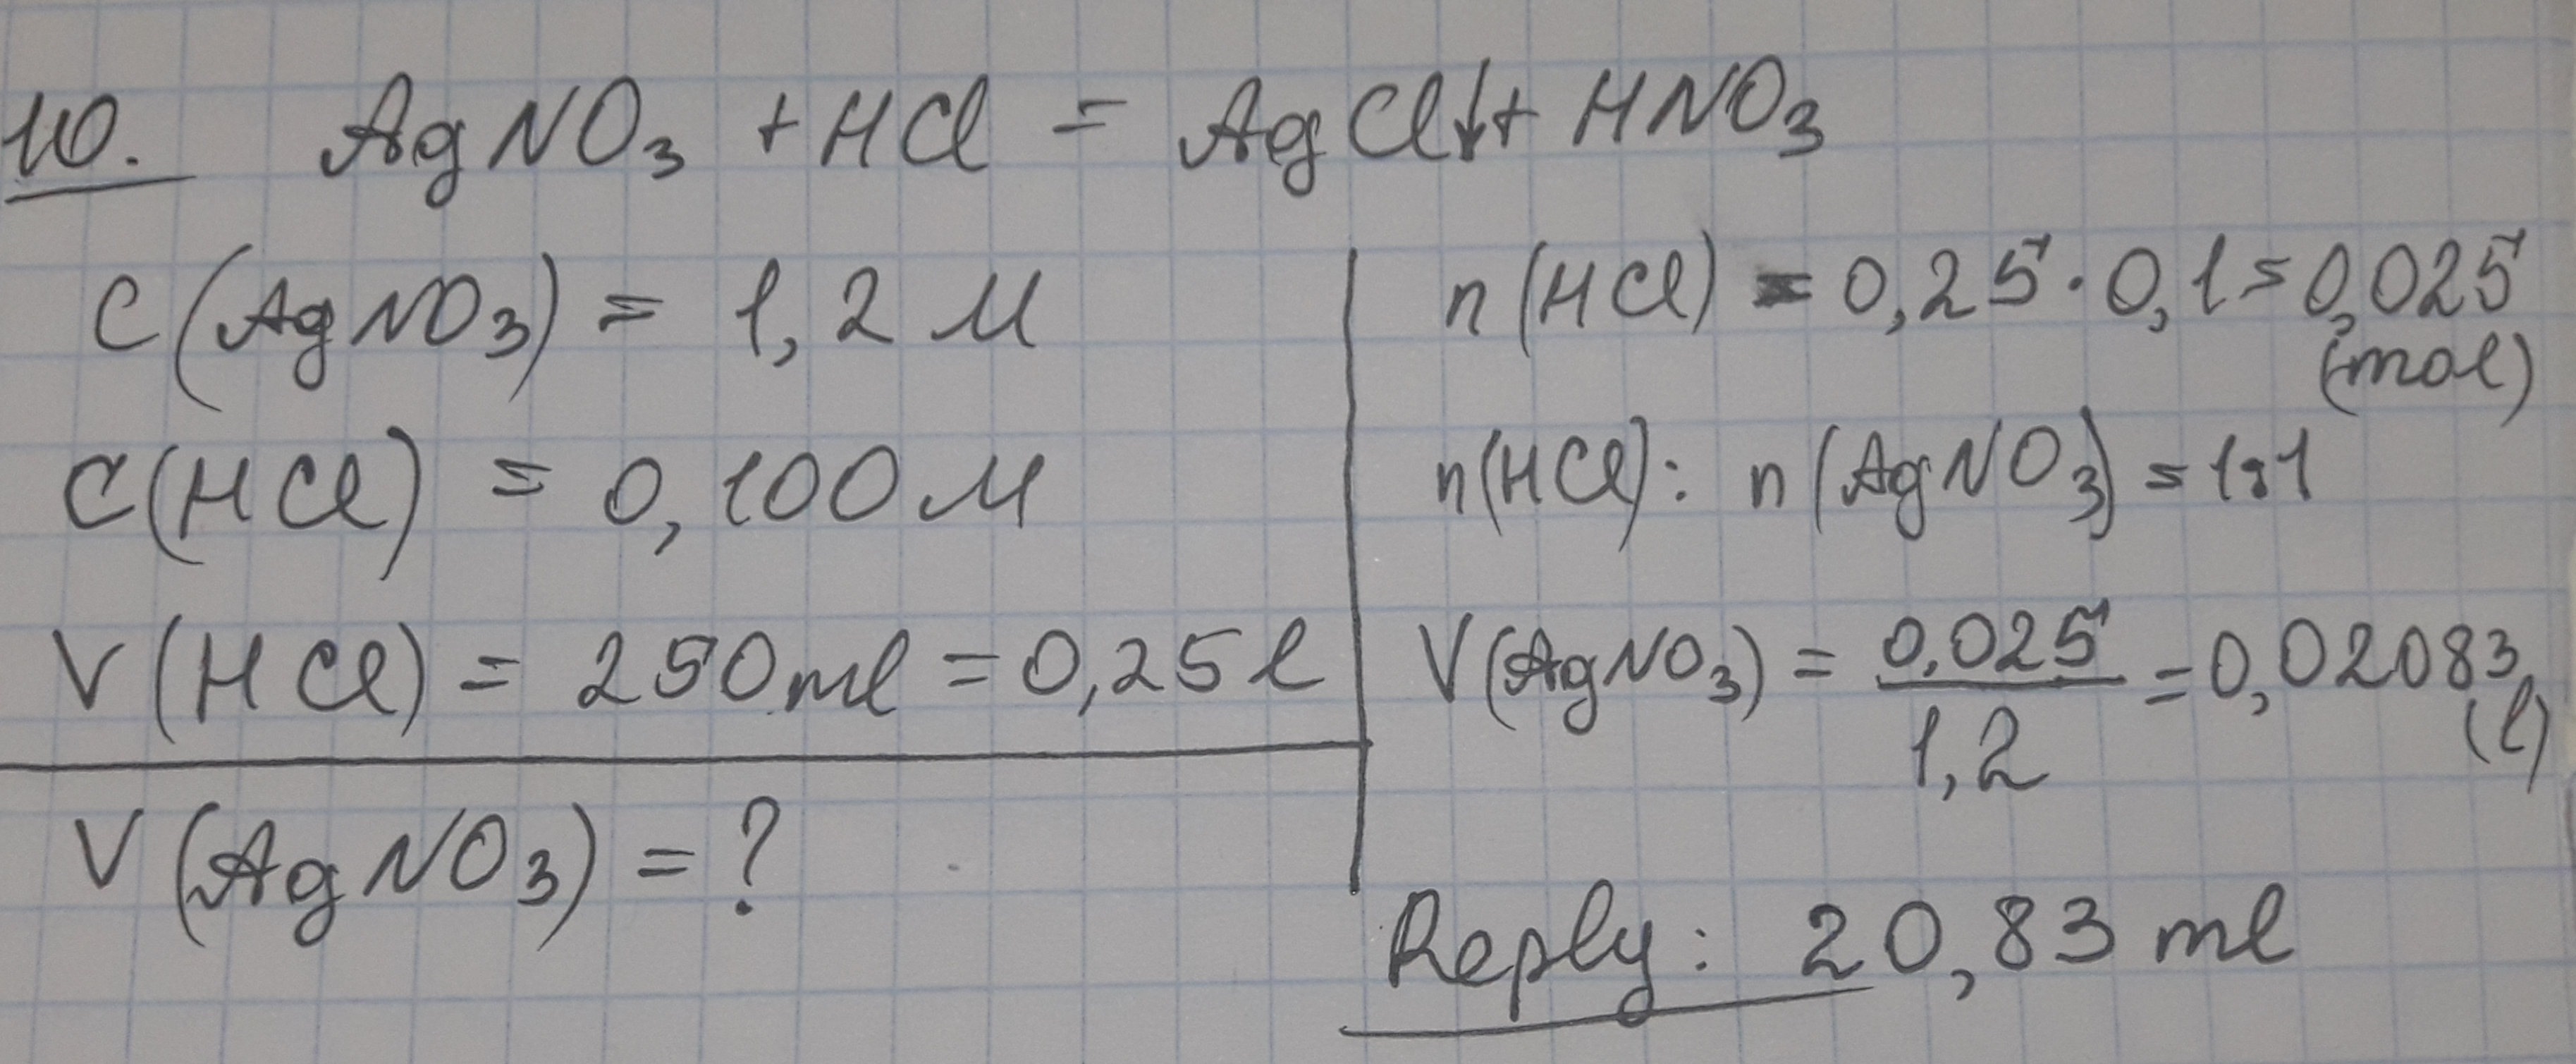 10. AgNO₃ + HCl = AgCl↓ + HNO₃
C(AgNO₃) = 1,2 M
C(HCl) = 0,100 M
V(HCl) = 250 ml = 0,25 l
V(AgNO₃) = ?
n(HCl) = 0,25 · 0,1 = 0,025
(mol)
n(HCl) : n(AgNO₃) = 1:1
V(AgNO₃) = 0,025 / 1,2 = 0,02083
(l)
Reply: 20,83 ml